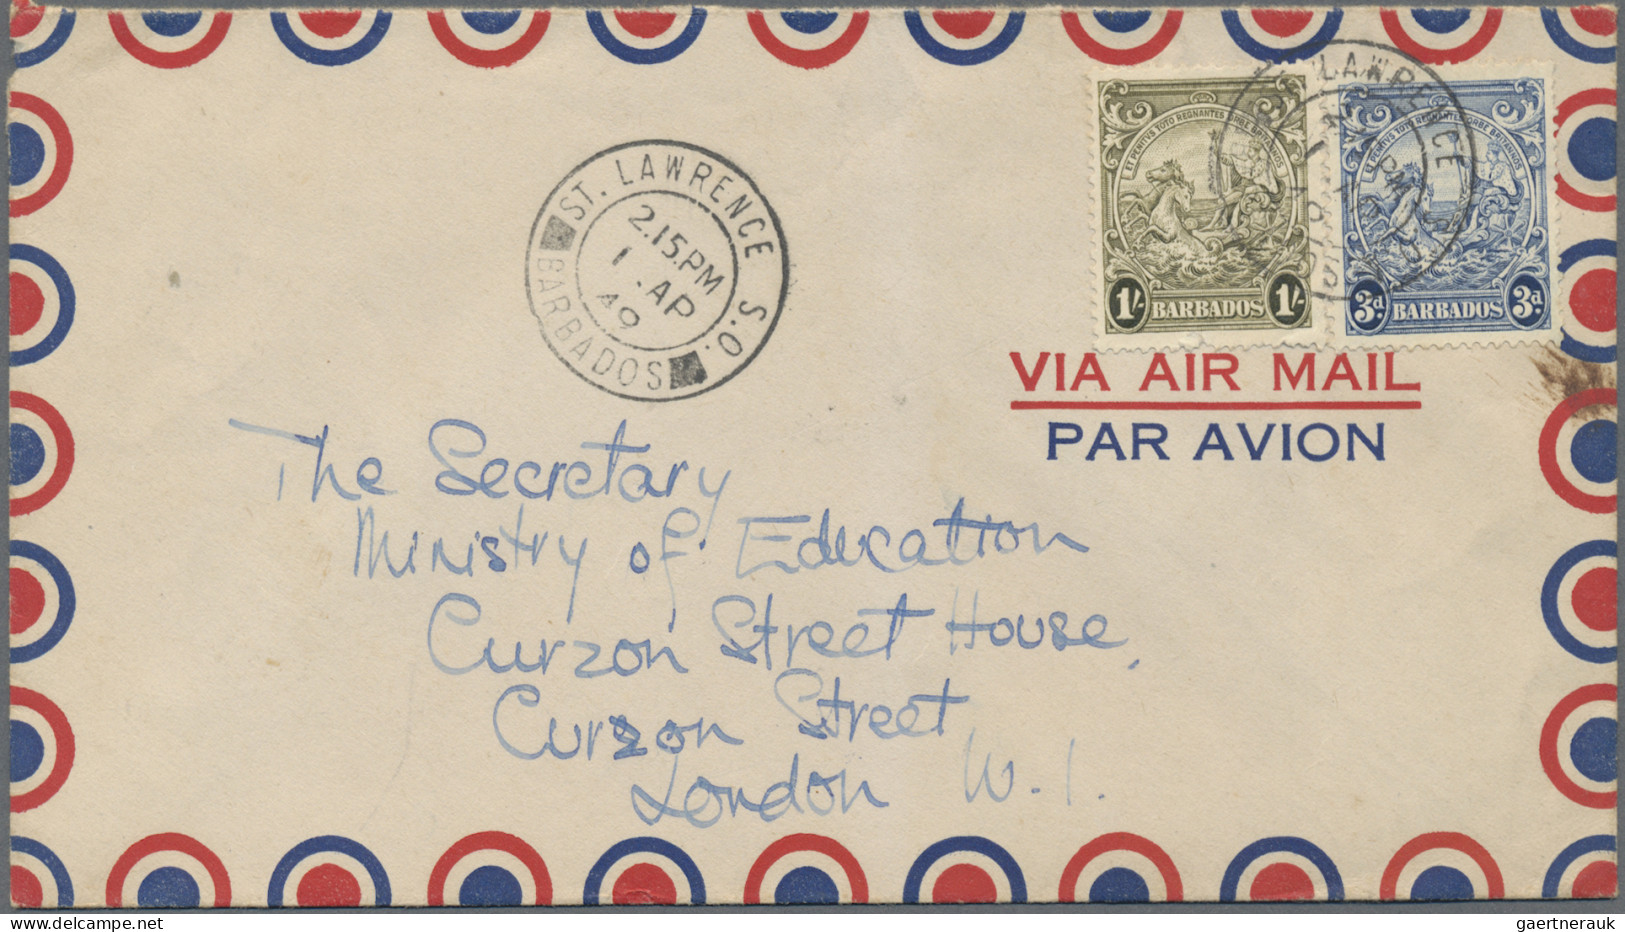 ET PENITVS TOTO REGNANTES ORBE BRITANNOS
1/- BARBADOS 1/-
ET PENITVS TOTO REGNANTES ORBE BRITANNOS
3d BARBADOS 3d
LAWRENCE
PM
ST. LAWRENCE S.O.
2.15.PM
1 . AP
49
BARBADOS
VIA AIR MAIL
PAR AVION
The Secretary
Ministry of Education
Curzon Street House,
Curzon Street
London W.1.
gaertnerauk